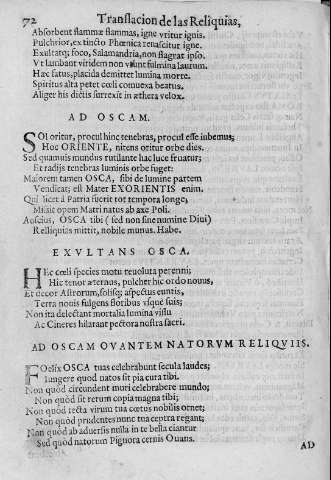 72 Translacion de las Reliquias,
Absorbent flammæ flammas, igne vritur ignis.
Pulchrior, ex tincto Phœnica renascitur igne.
Exultatq; foco, Salamandria, non flagrat ipso.
Vt lambant viridem non valunt fulmina laurum.
Hæc fatus, placida demittet lumina morte.
Spiritus alta petet cœli comuexa beatus.
Aliger his dictis surrexit in æthera velox.
AD OSCAM.
SOl oritur, procul hinc tenebras, procul esse iubemus;
Hoc ORIENTE, nitens oritur orbe dies.
Sed quamuis mundus rutilante hac luce fruatur;
Et radijs tenebras luminis orbe fuget:
Maiorem tamen OSCA, sibi de lumine partem
Vendicat; est Mater EXORIENTIS enim.
Qui licet à Patria fuerit tot tempora longe,
Misit opem Matri natus ab axe Poli.
Auscius, OSCA tibi (sed non sine numine Diui)
Relliquias mittit, nobile munus. Habe.
EXVLTANS OSCA.
HÆc cœli species motu reuoluta perenni;
Hic tenor æternus, pulcher hic ordo nouus,
Et decor Astrorum, solisq; aspectus euntis,
Terra nouis fulgens floribus vsque suis;
Non ita delectant mortalia lumina visu
Ac Cineres hilarant pectora nostra sacri.
AD OSCAM OVANTEM NATORVM RELIQVIIS.
FOelix OSCA tuas celebrabunt secula laudes;
Iungere quod natos sit pia cura tibi.
Non quòd circundent muri celebrabere mundo;
Non quòd sit rerum copia magna tibi;
Non quòd recta virûm tua cœtus nobilis ornet;
Non quòd prudentes nunc tua ceptra regant;
Non quòd ab aduersis nulla in te bella ciantur
Sed quòd natorum Pignora cernis Ouans.
AD